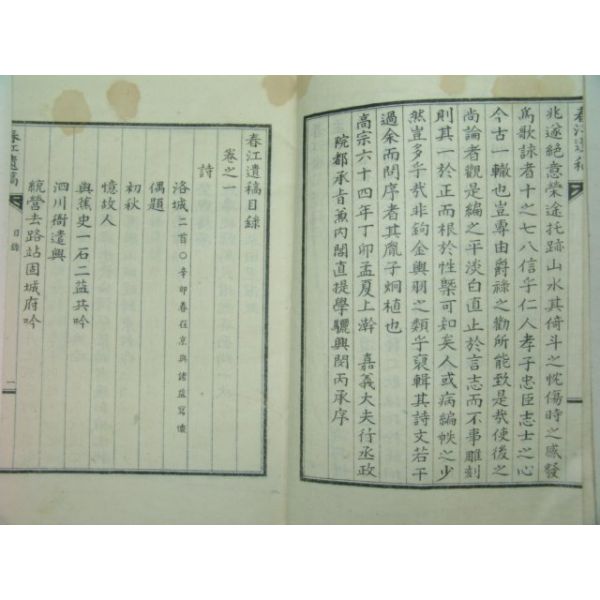 春江遺稿
兆遂絕意榮途托跡山水其倚斗之忱傷時之感發
爲歌詠者十之七八信乎仁人孝子忠臣志士之心
今古一轍也豈專由爵祿之勸所能致是哉使後之
尚論者觀是編之平淡白直止於言志而不事雕刻
則其一於正而根於性槩可知矣人或病編帙之少
然豈多乎哉非鉤金輿羽之類乎裒輯其詩文若干
過余而問序者其胤子炯植也
高宗六十四年丁卯孟夏上澣 嘉義大夫行丞政
院都承旨兼內閣直提學驪興閔丙承序
春江遺稿目錄
卷之一
詩
洛城二首○辛卯春在京與諸益寫懷
偶題
初秋
憶故人
與蕉史一石二藍共吟
泗川衙遣興
統營去路站固城府吟
春江遺稿
目錄
一